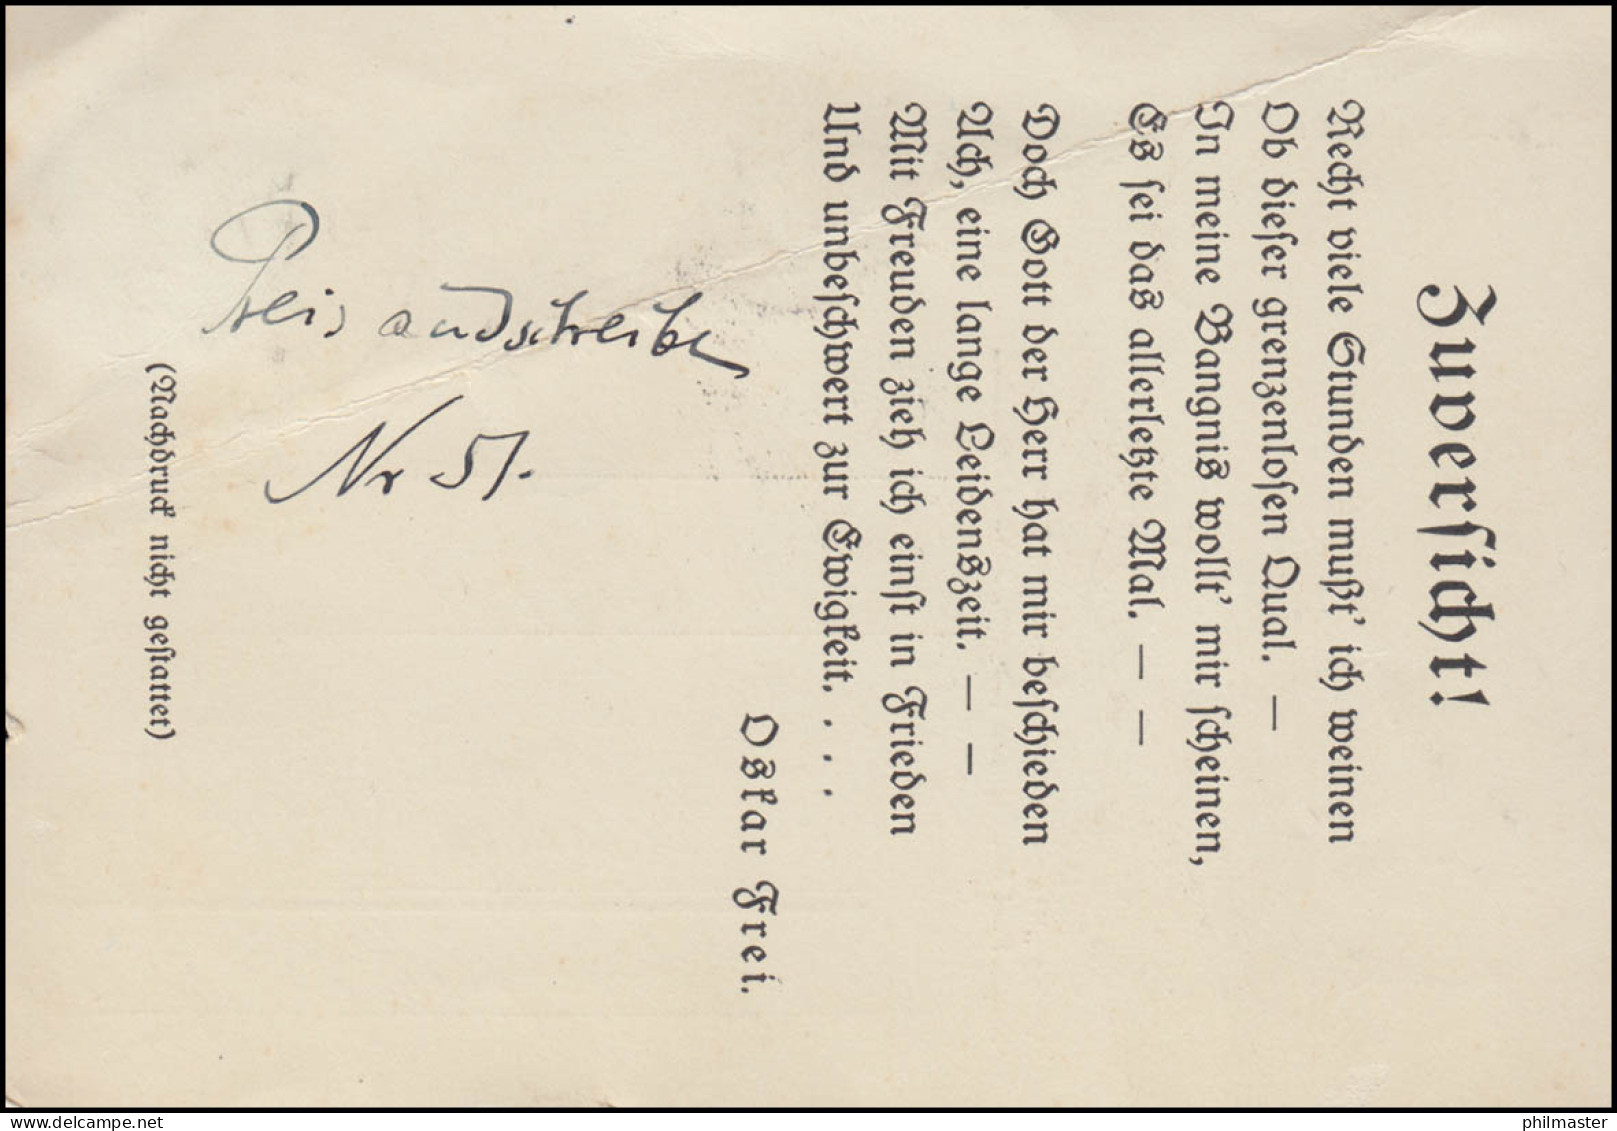 Zuversicht!
Recht viele Stunden mußt' ich weinen
Ob dieser grenzenlosen Qual. —
In meine Bangnis wollt' mir scheinen,
Es sei das allerletzte Mal. — —
Doch Gott der Herr hat mir beschieden
Ach, eine lange Leidenszeit. — —
Mit Freuden zieh ich einst in Frieden
Und unbeschwert zur Ewigkeit. . . .
Oskar Frei.
(Nachdruck nicht gestattet)
Preisausschreiben
Nr 51.
www.delcampe.net
philmaster